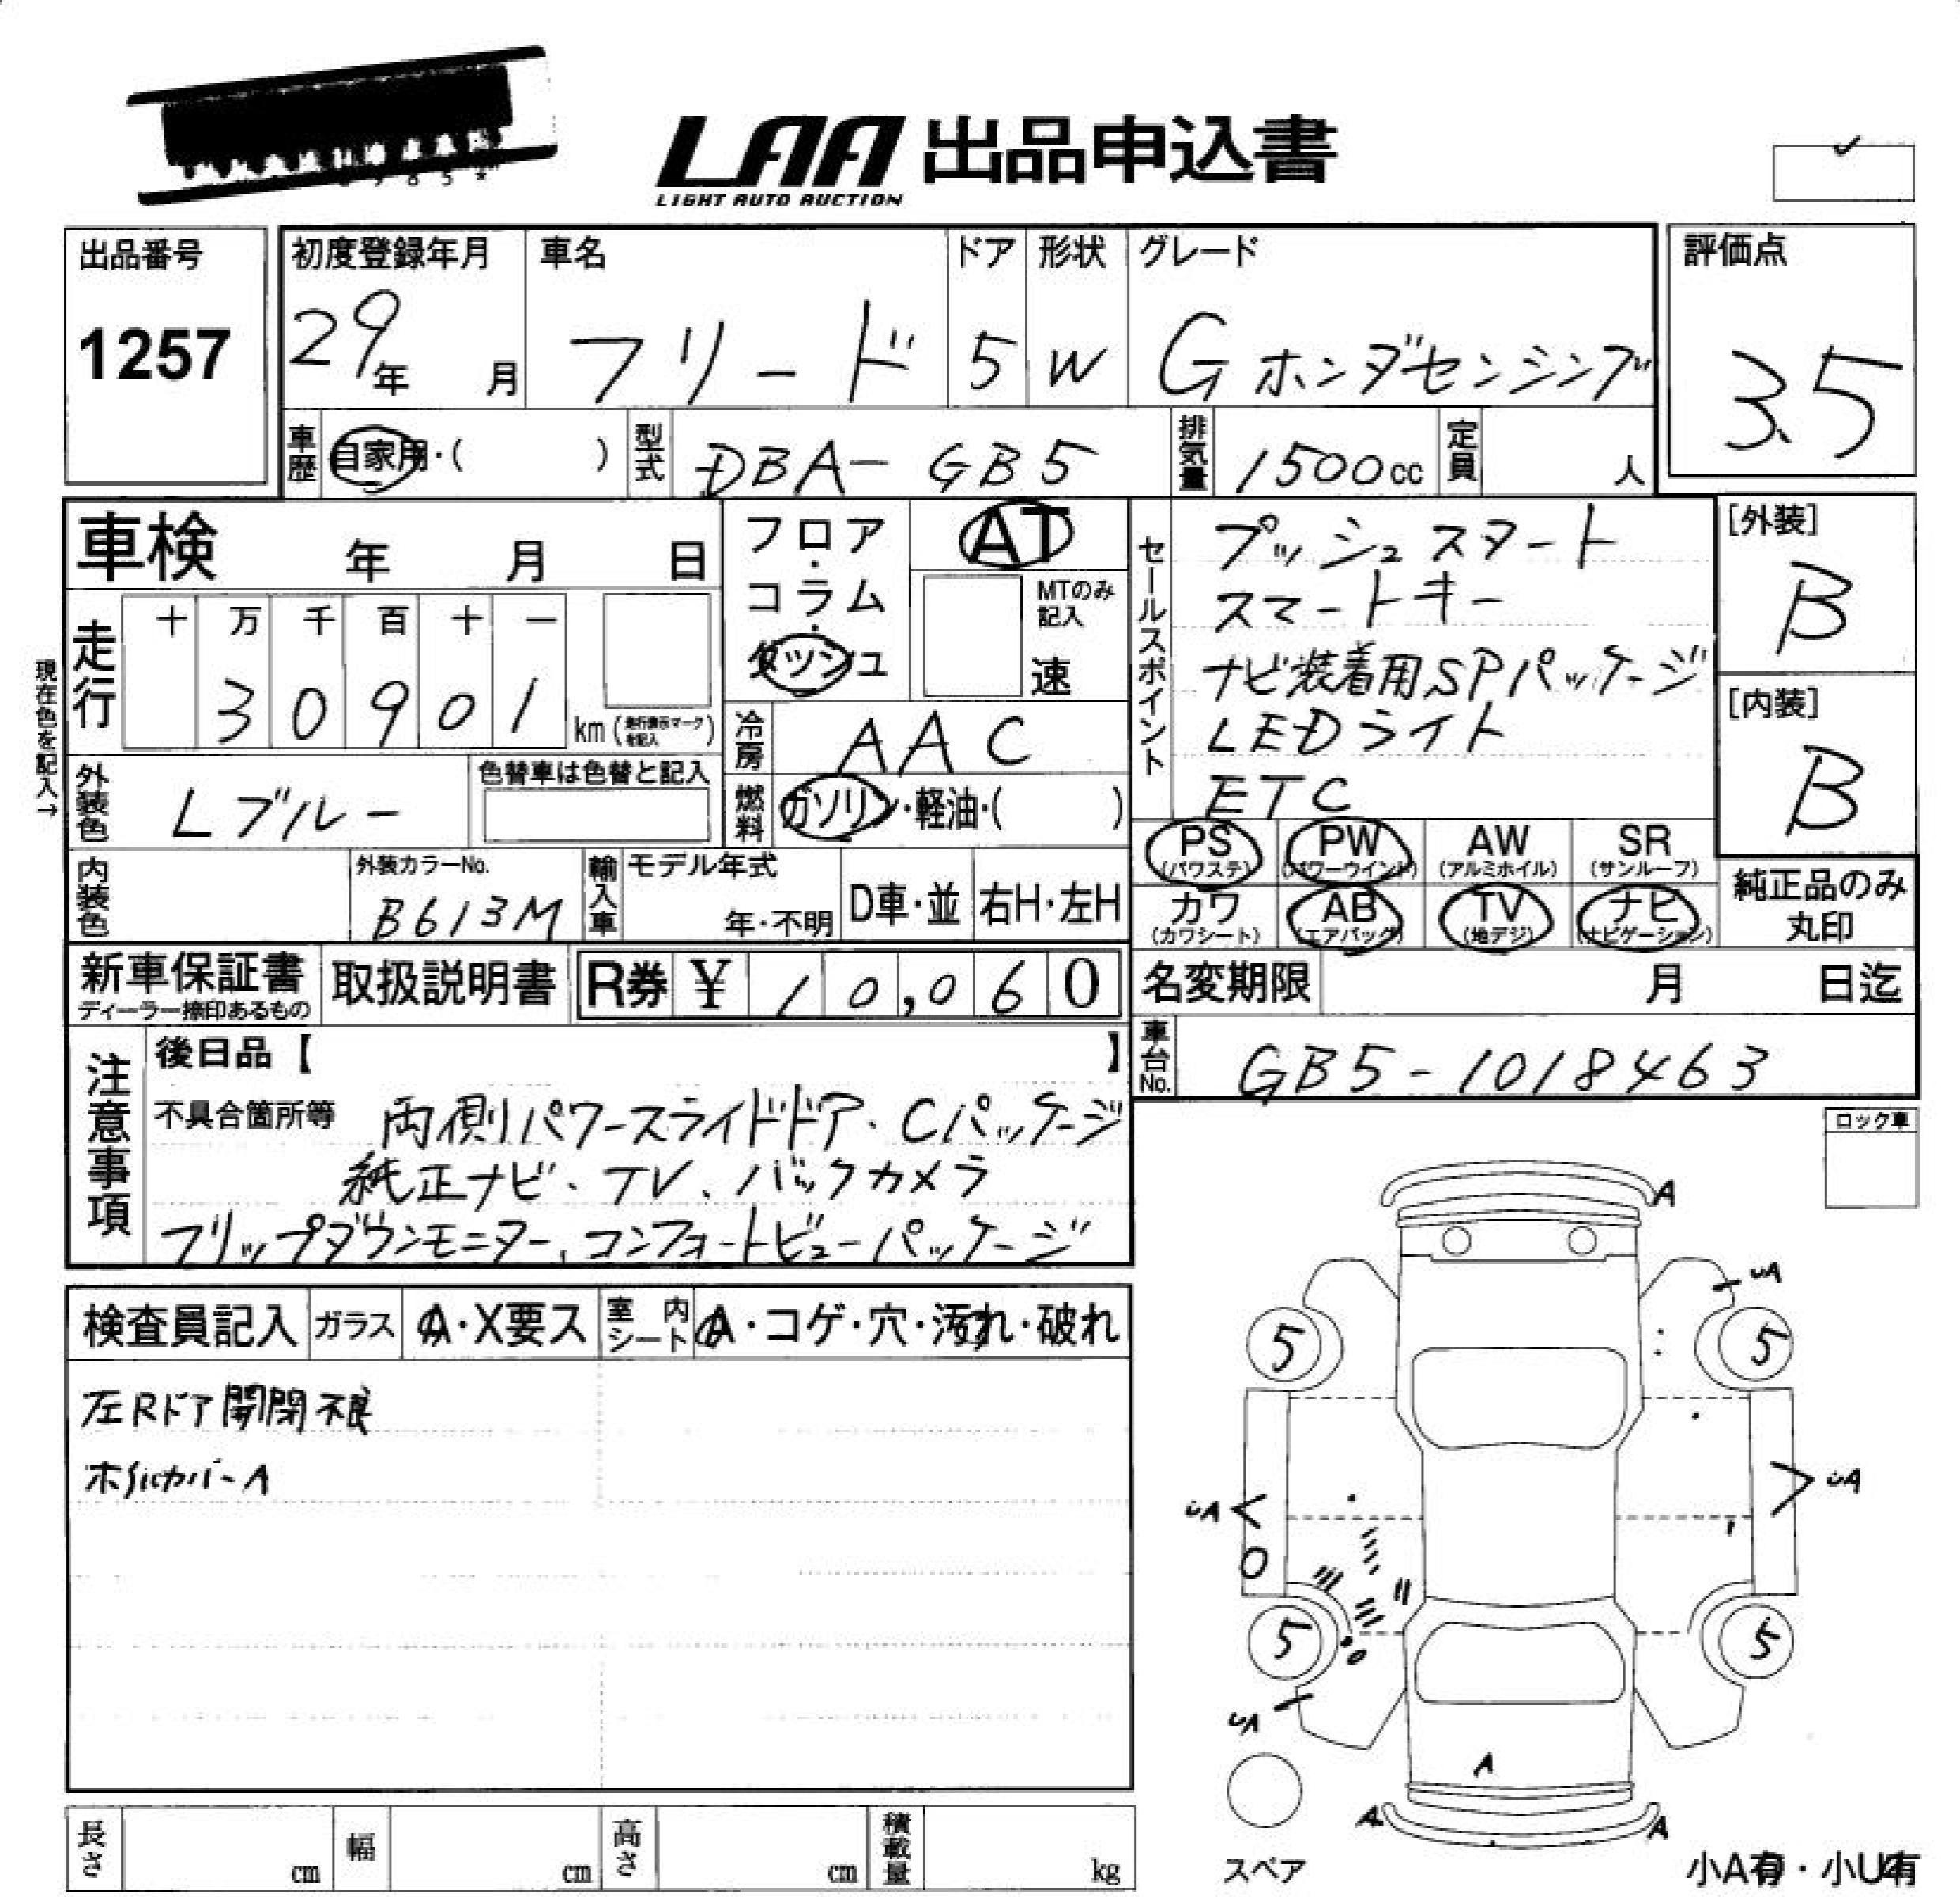 LAA 出品申込書
LIGHT AUTO AUCTION
出品番号
1257
初度登録年月
29年 月
車名
フリード
ドア
5
形状
W
グレード
G ホンダセンシング
評価点
3.5
車歴 自家用・( )
型式 DBA-GB5
排気量 1500cc
定員 人
車検 年 月 日
フロア・コラム・ダッシュ
AT
MTのみ記入
速
セールスポイント
プッシュスタート
スマートキー
ナビ装着用SPパッケージ
LEDライト
ETC
[外装]
B
[内装]
B
現在色を記入→
走行
十 万 千 百 十 一
3 0 9 0 1
km (走行表示マークを記入)
冷房 AAC
外装色 Lブルー
色替車は色替と記入
燃料 ガソリン・軽油・( )
PS (パワステ)
PW (パワーウインド)
AW (アルミホイル)
SR (サンルーフ)
カワ (カワシート)
AB (エアバック)
TV (地デジ)
ナビ (ナビゲーション)
純正品のみ丸印
内装色
外装カラーNo.
B613M
輸入車
モデル年式
年・不明
D車・並
右H・左H
新車保証書
ディーラー捺印あるもの
取扱説明書
R券 ¥ 10,060
名変期限 月 日迄
車台No. GB5-1018463
注意事項
後日品【 】
不具合箇所等 両側パワースライドドア・Cパッケージ
純正ナビ・TV、バックカメラ
フリップダウンモニター、コンフォートビューパッケージ
ロック車
検査員記入
ガラス A・X要ス
室内シート A・コゲ・穴・汚れ・破れ
左Rドア開閉不良
ホイルカバーA
A
UA
5 5
UA UA
5 5
UA
A
A A
スペア
小A有・小U有
長さ cm
幅 cm
高さ cm
積載量 kg